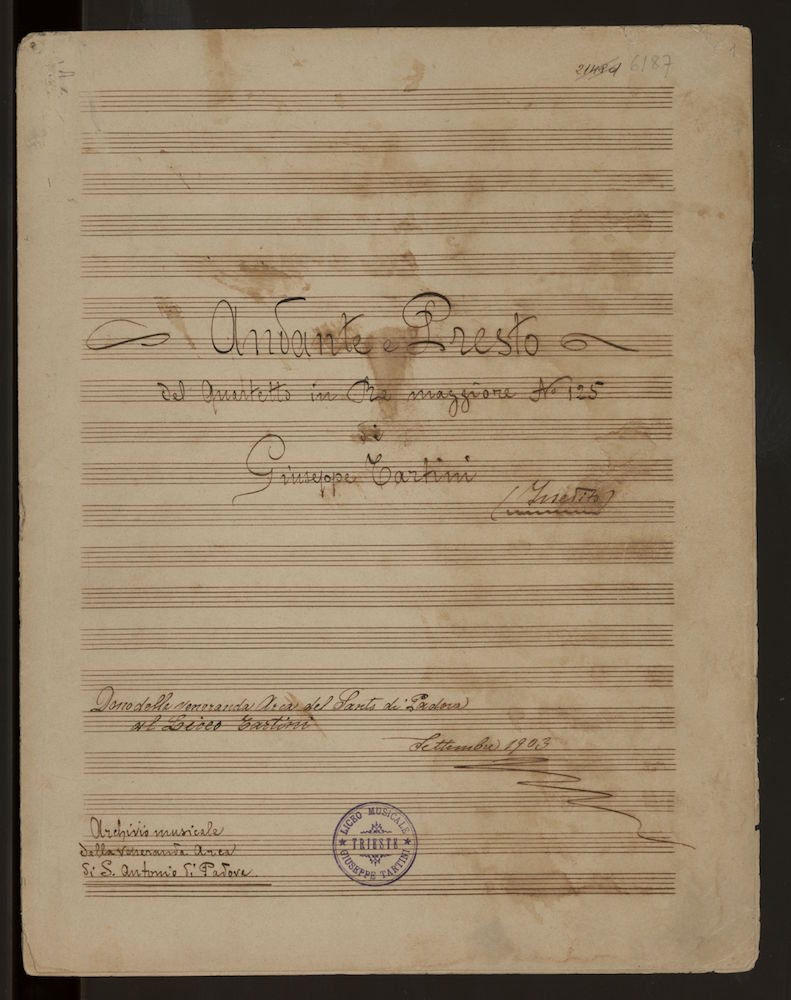 6187
Andante e Presto
del Quartetto in Re maggiore No 125
di
Giuseppe Tartini
(Inedito)
Dono della veneranda Arca del Santo di Padova
al Liceo Tartini
Settembre 1903
Archivio musicale
della veneranda Arca
di S. Antonio di Padova.
LICEO MUSICALE
TRIESTE
GIUSEPPE TARTINI